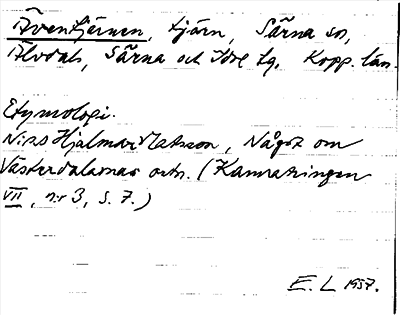 Äventjärnen, tjärn, Särna sn,
Älvdals, Särna och Idre tg. Kopp. län.
Etymologi.
Nils Hjalmar Matsson, Något om
Västerdalarnas ortn. (Kamratringen
VII, nr 3, s. 7.)
E. L 1957.